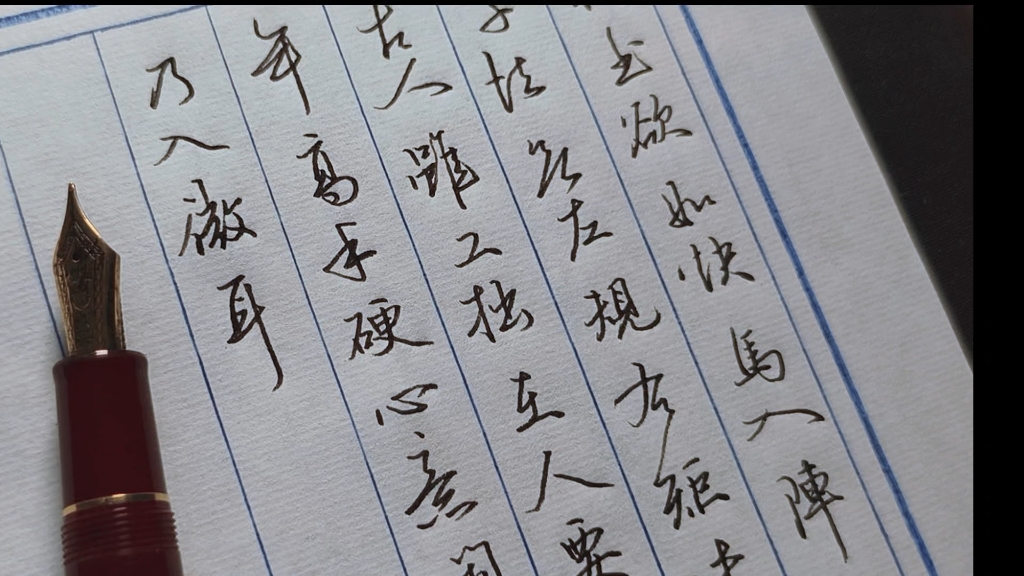 書欲如快馬入陣
法欲左規右矩
古人雖工拙在人要
年高手硬心意閑
乃入微耳